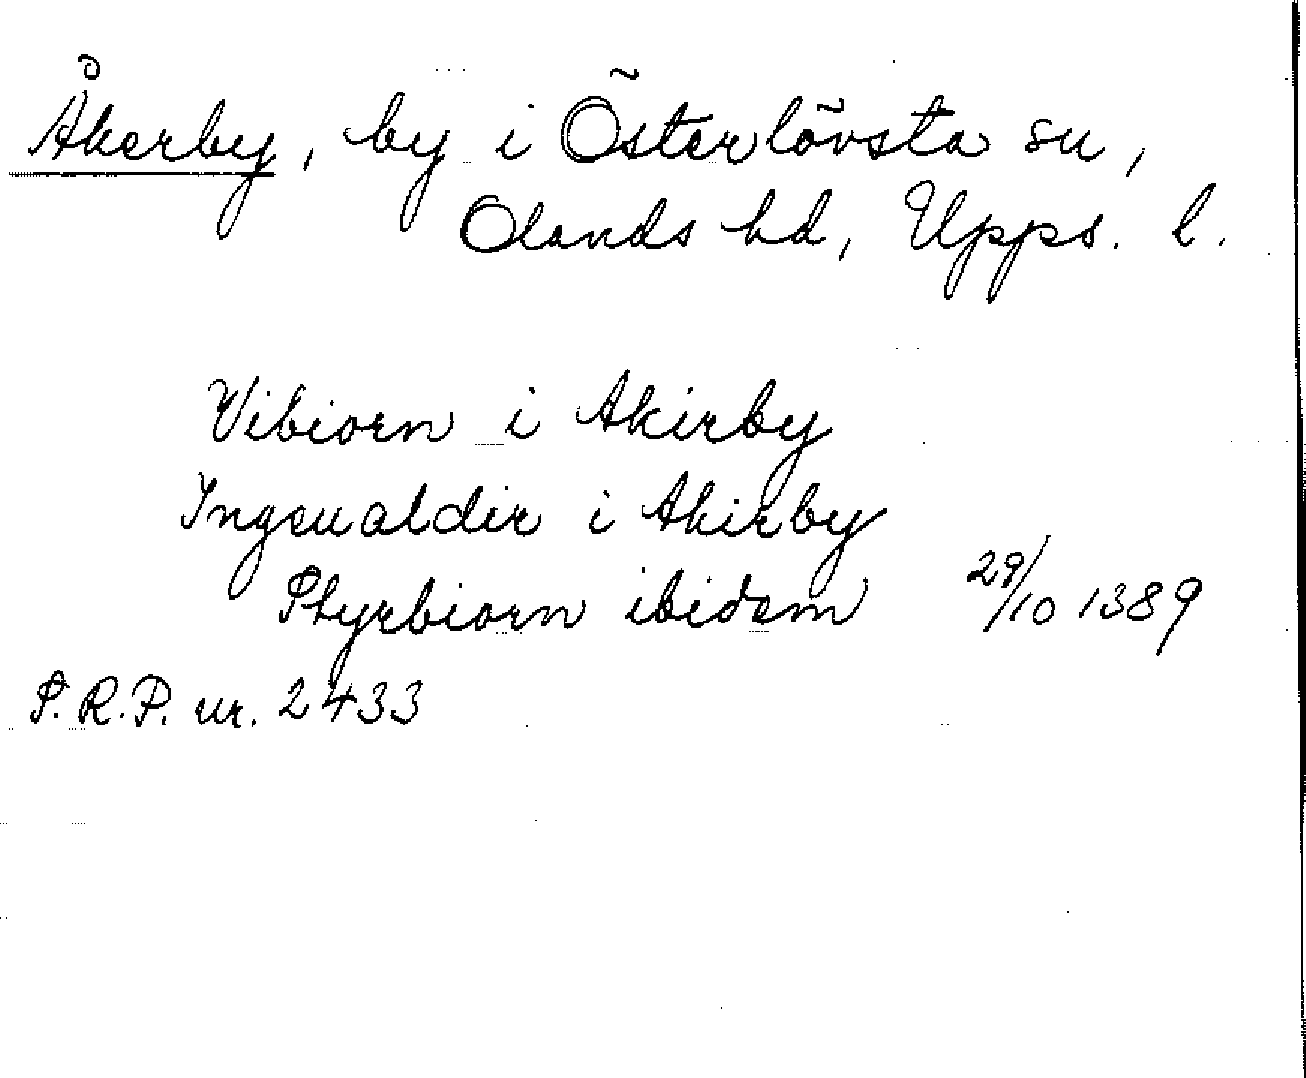 Åkerby, by i Österlövsta sn,
Olands hd, Upps. l.
Vibiorn i Akirby
Ingeualdir i Akirby
Styrbiorn ibidem 29/10 1389
S.R.P. nr. 2433